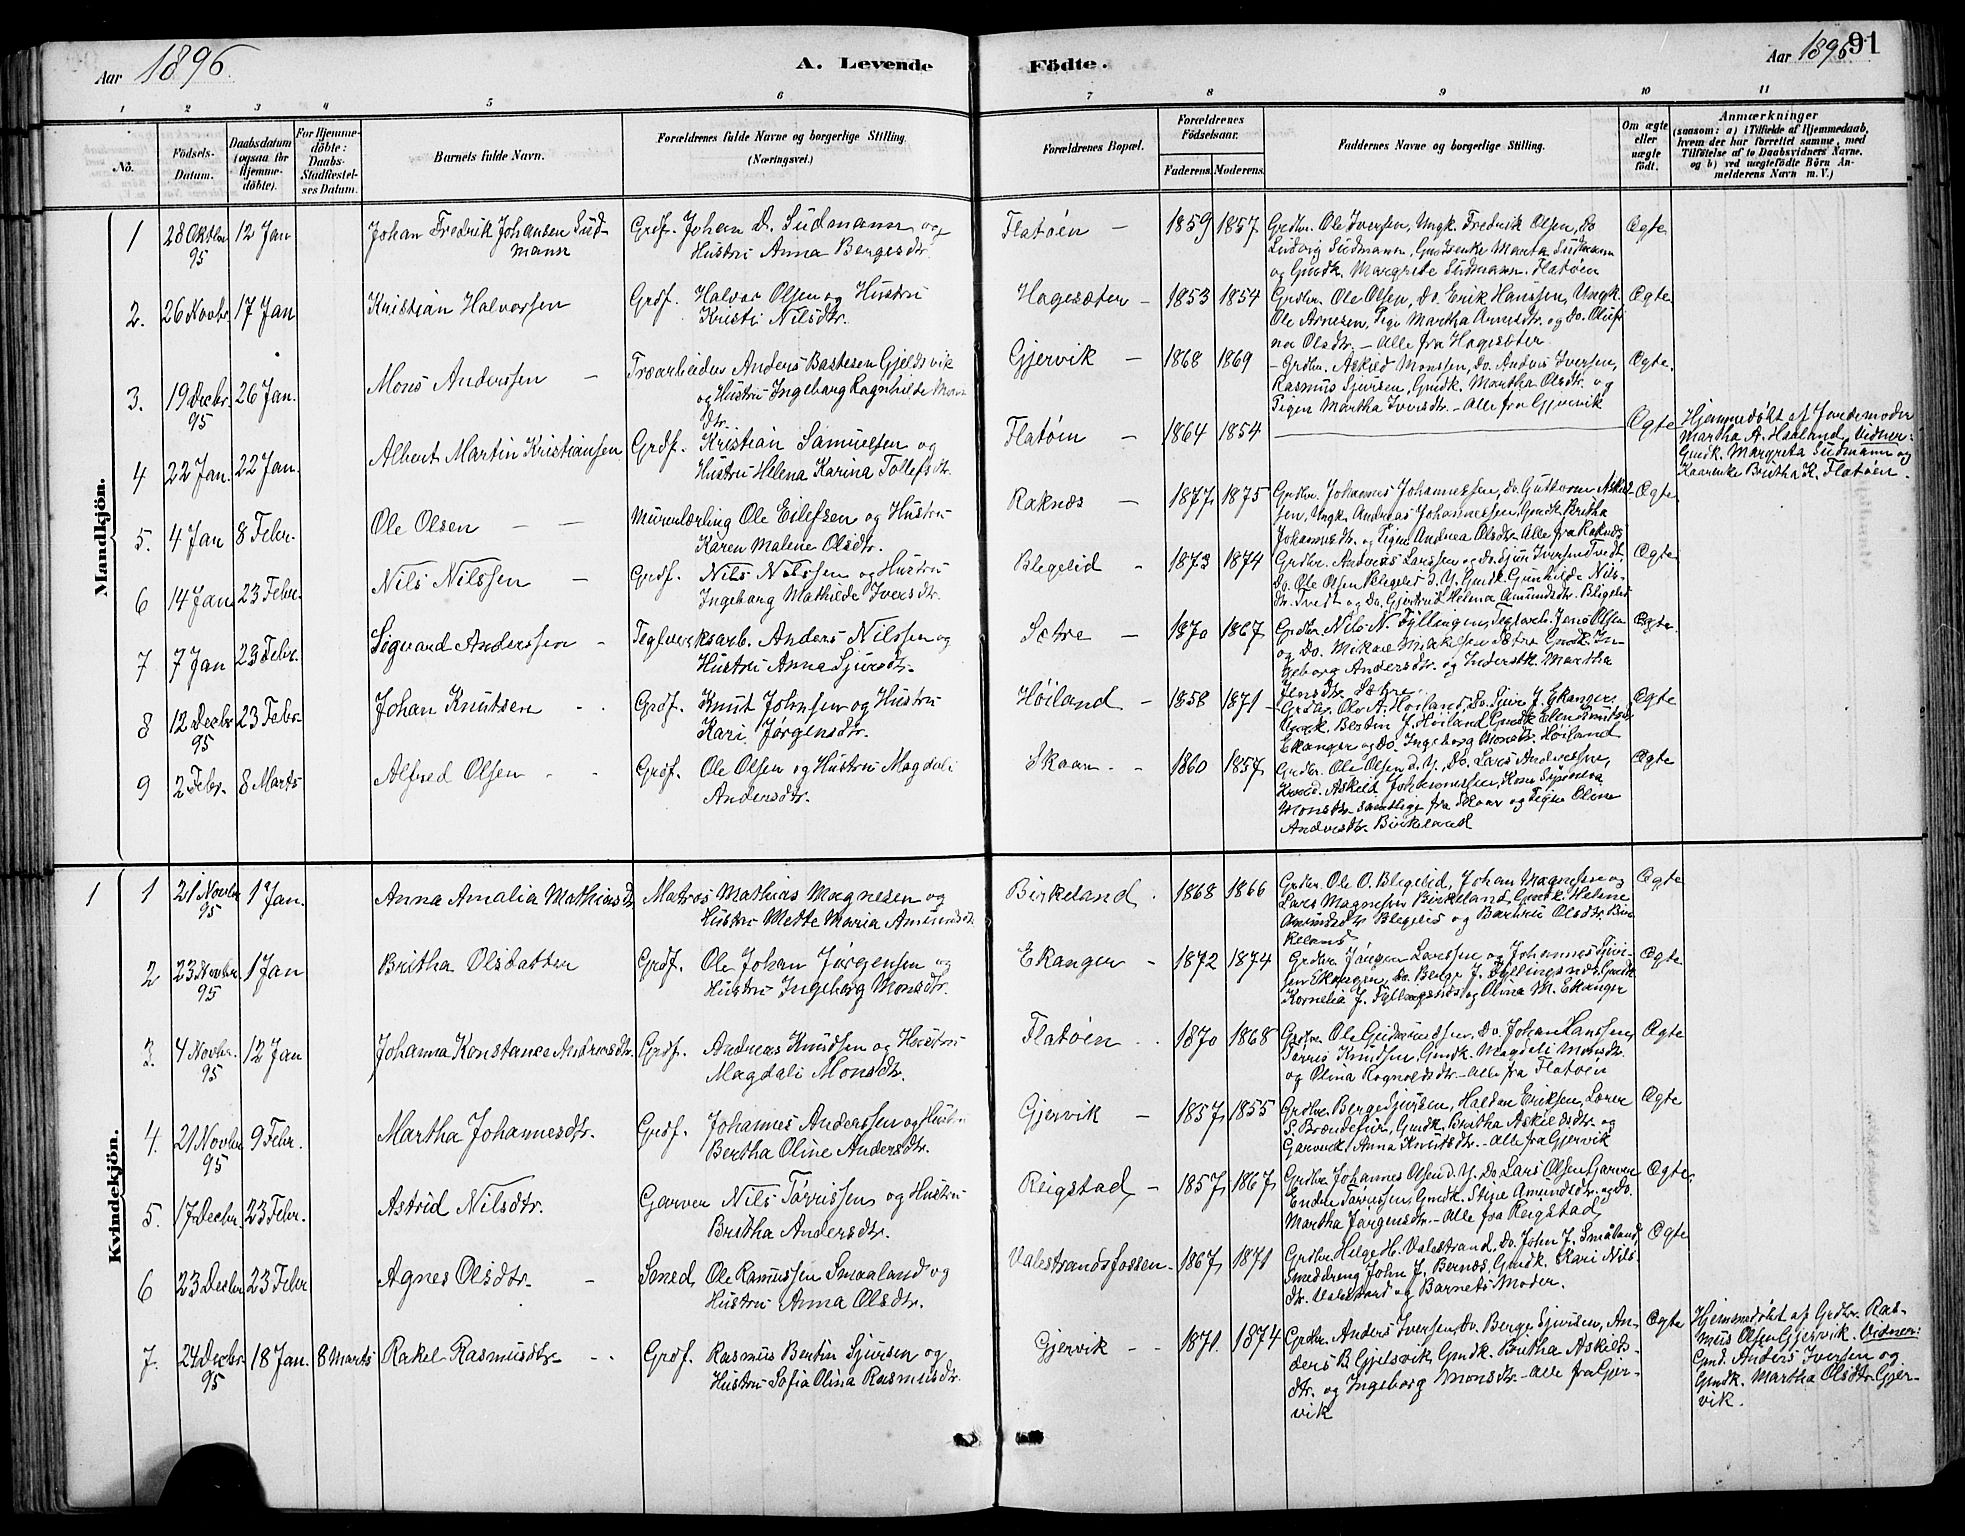 Aar 1896.
A. Levende Födte.
Aar 1896.
91
1 2 3 4 5 6 7 8 9 10 11
No.
Födsels-Datum.
Daabsdatum (ogsaa for Hjemmedöbte).
For Hjemmedöbte: Daabs-Stadfæstelses Datum.
Barnets fulde Navn.
Forældrenes fulde Navne og borgerlige Stilling.
(Næringsvei.)
Forældrenes Bopæl.
Forældrenes Födselsaar.
Faderens. Moderens.
Faddernes Navne og borgerlige Stilling.
Om ægte eller uægte födt.
Anmærkninger
(saasom: a) i Tilfælde af Hjemmedaab, hvem der har forrettet samme, med Tilföielse af to Daabsvidners Navne. og b) ved uægtefödte Börn Anmelderens Navn m. V.)
Mandkjön.
1 28 Oktbr. 95 12 Jan Johan Fredrik Johansen Sudmann Grdf. Johan D. Sudmann og Hustru Anna Bergesdtr. Flatöen – 1859 1857 Grdbr. Ole Iversen, Ungk. Fredrik Olsen, Do Ludvig Sudmann, Marta Sudmann og Gmdk. Margrete Sudmann. Flatöen Ægte
2. 26 Novbr. 17 Jan Kristian Halvorsen Grdf. Halvor Olsen og Hustru Kristi Nilsdtr. Hagesæter – 1853 1854 Grdbr. Ole Olsen, Do. Erik Hanssen, Ungk. Ole Arnesen, Pige Martha Arnesdtr. og Do. Olufina Olsdtr. – Alle fra Hagesæter Ægte
3. 19 Decbr. 95 26 Jan. Mons Anderssen – Træarbeider Anders Bastesen Gjeldsvik og Hustru Ingeborg Ragnhilde Monsdtr. Gjervik – 1868 1869 – Grdbr. Askild Monssen, Do. Anders Iversen, Rasmus Sjursen, Gmdk. Martha Olsdtr. og Pigen Martha Iversdtr. – Alle fra Gjervik Ægte.
4 22 Jan. 22 Jan. Albert Martin Kristiansen Grdf. Kristian Samuelsen og Hustru Helena Karina Tollefsdtr. Flatöen – 1864 1854 Ægte Hjemmedöbt af Jordemoder Martha A. Haaland. Vidner: Gmdk. Margreta Sudmann og Kaarenke Britha K. Flatöen.
5. 4 Jan 8 Febr. Ole Olsen – – Murerlærling Ole Eilefsen og Hustru Karen Malene Olsdtr. Raknæs – 1877 1875 Grdbr. Johannes Johannessen, Do. Guttorm Askildsen, Ungk. Andreas Johannessen, Gmdk. Britha Johannesdtr. og Pigen Andrea Olsdtr. Alle fra Raknæs Ægte
6 14 Jan 23 Febr. Nils Nilssen – Grdf. Nils Nilssen og Hustru Ingeborg Mathilde Iversdtr. Blegelid – 1873 1874 Grdbr. Andreas Larssen og Do. Sjur Iversen Tvedt, Do. Ole Olsen Blegelid d. Y. Gmdk. Gunhilde Nilsdtr. Tvedt og Do. Gjertrud Helena Amundsdtr. Bligelid Ægte
7 7 Jan 23 Febr. Sigvard Anderssen – Teglverksarb. Anders Nilssen og Hustru Anna Sjursdtr. Sætre – 1870 1867 Grdbr. Nils N. Fyllingen, Teglarb. Jens Olsen og Do. Mikael Mikkelsen Sætre Gmdk. Ingeborg Andersdtr. og Inderstk. Martha Jensdtr. Sætre. Ægte.
8 12 Decbr. 95 23 Febr. Johan Knutsen – – Grdf. Knut Johnsen og Hustru Kari Jørgensdtr. Höiland – 1858 1871 – Grdbr. Ole A. Höiland, Do. Sjur J. Ekanger, Ungk. Bertin J. Höiland Gmdk. Elen Ekanger og Do. Ingeborg Monsdtr. Höiland Ægte
9 2 Febr. 8 Marts Alfred Olsen – – Grdf. Ole Olsen og Hustru Magdali Andersdtr. Skaar – – 1860 1857 Grdbr. Ole Olsen d. Y. Do. Lars Anderssen, Askild Johannessen, Kone Synneva Monsdtr. – samtlige fra Skaar og Pigen Oline Andersdtr. Birkeland Ægte
Kvindekjön.
1
1 21 Novbr. 95 1 Jan. Anna Amalia Mathiasd. Matros Mathias Magnesen og Hustru Mette Maria Amundsdtr. Birkeland. 1868 1866 Grdbr. Ole O. Blegelid, Johan Magnesen og Lars Magnesen Birkeland, Gmdk. Helene Amundsdtr Blegelid og Barbru Olsdtr Birkeland Ægte
2 23 Novbr. 95 1 Jan Britha Olsdatter Grdf. Ole Johan Jørgensen og Hustru Ingeborg Monsdtr. Ekanger – 1872 1874 Grdbr. Jörgen Larssen og Johannes Ekanger, Do. Berge J. Fyllingsnæs Gmdk Kornelia J. Fyllingsnæs og Olina M. Ekanger Ægte
3. 4 Novbr. 95 12 Jan Johanna Konstance Andreasdtr. Grdf. Andreas Knudsen og Hustru Magdali Monsdtr. Flatöen – 1870 1868 Grdbr. Ole Gudmundsen, Do. Johan Hanssen, Törris Knudsen, Gmdk. Magdali Monsdtr. og Olina Ragnoldsdtr. – Alle fra Flatöen Ægte
4. 21 Novbr 95 9 Febr. Martha Johannesdtr. Grdf. Johannes Anderssen og Hustru Bertha Oline Andersdtr. Gjervik – 1857 1855 Grdbr. Berge Sjursen, Haldan Eriksen, Lærer S. Brændefur, Gmdk. Britha Askildsdtr. og Anna Knutsdtr. – Alle fra Gjervik Ægte
5. 17 Decbr. 23 Febr. Astrid Nilsdtr. Garver Nils Törrissen og Hustru Britha Andersdtr. Reigstad – 1857 1867 Grdbr. Johannes Olsen d. Y. Do. Lars Olsen, Garver Endre Törrissen, Gmdk. Stine Amundsdtr. og Do. Martha Jørgensdtr. – Alle fra Reigstad, Ægte,
6 23 Decbr 23 Febr Agnes Olsdtr. – Smed, Ole Rasmussen Smaaland og Hustru Anna Olsdtr. Valestrandsfossen – 1867 1871 Grdbr. Helge H. Valestrand, Do. John J. Småland, Smeddreng John J. Bernæs, Gmdk. Kari Nilsdtr. Valestrand og Barnets Moder. Ægte
7. 24 Decbr. 95 18 Jan. 8 Marts Rakel Rasmusdtr – – Grdf. Rasmus Bertin Sjursen og Hustru Sofia Olina Rasmusdtr. Gjervik – – 1871. 1874 Grdbr. Anders Iversen, Do. Berge Sjursen, Anders B. Gjelsvik, Gmdk. Britha Askildsdtr. og Ingeborg Monsdtr. – Alle fra Gjervik Ægte Hjemmedöbt af Grdbr. Rasmus Olsen Gjervik. Vidner: Gmd. Anders Iversen og Gmdk. Martha Olsdtr. Gjervik.